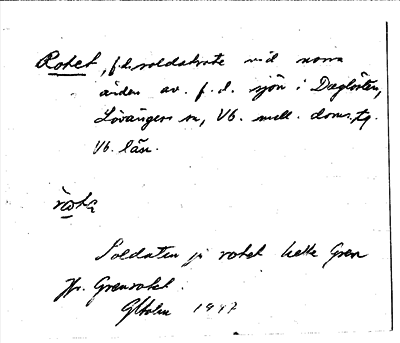 Rotet, f.d. soldatrote vid norra
änden av f.d. sjön i Dagläsken,
Lövångers sn, Vb. mell. doms. tg.
Vb. län.
Soldaten på rotet hette Gren
Jfr. Grenrotet.
GHolm 1947